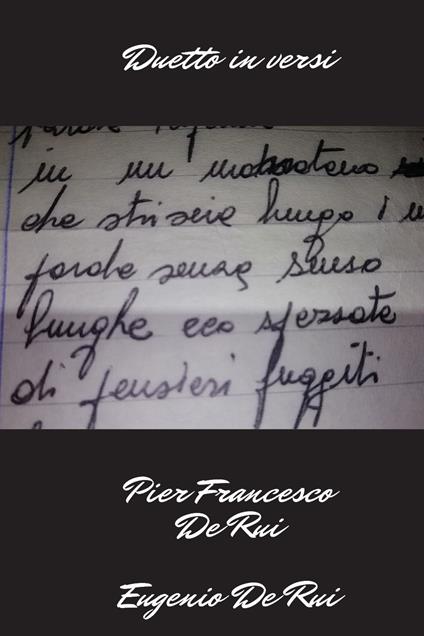 Duetto in versi
in un
che striscia lungo i
parole senza senso
lunghe eco spezzate
di pensieri fuggiti
Pier Francesco
De Rui
Eugenio De Rui